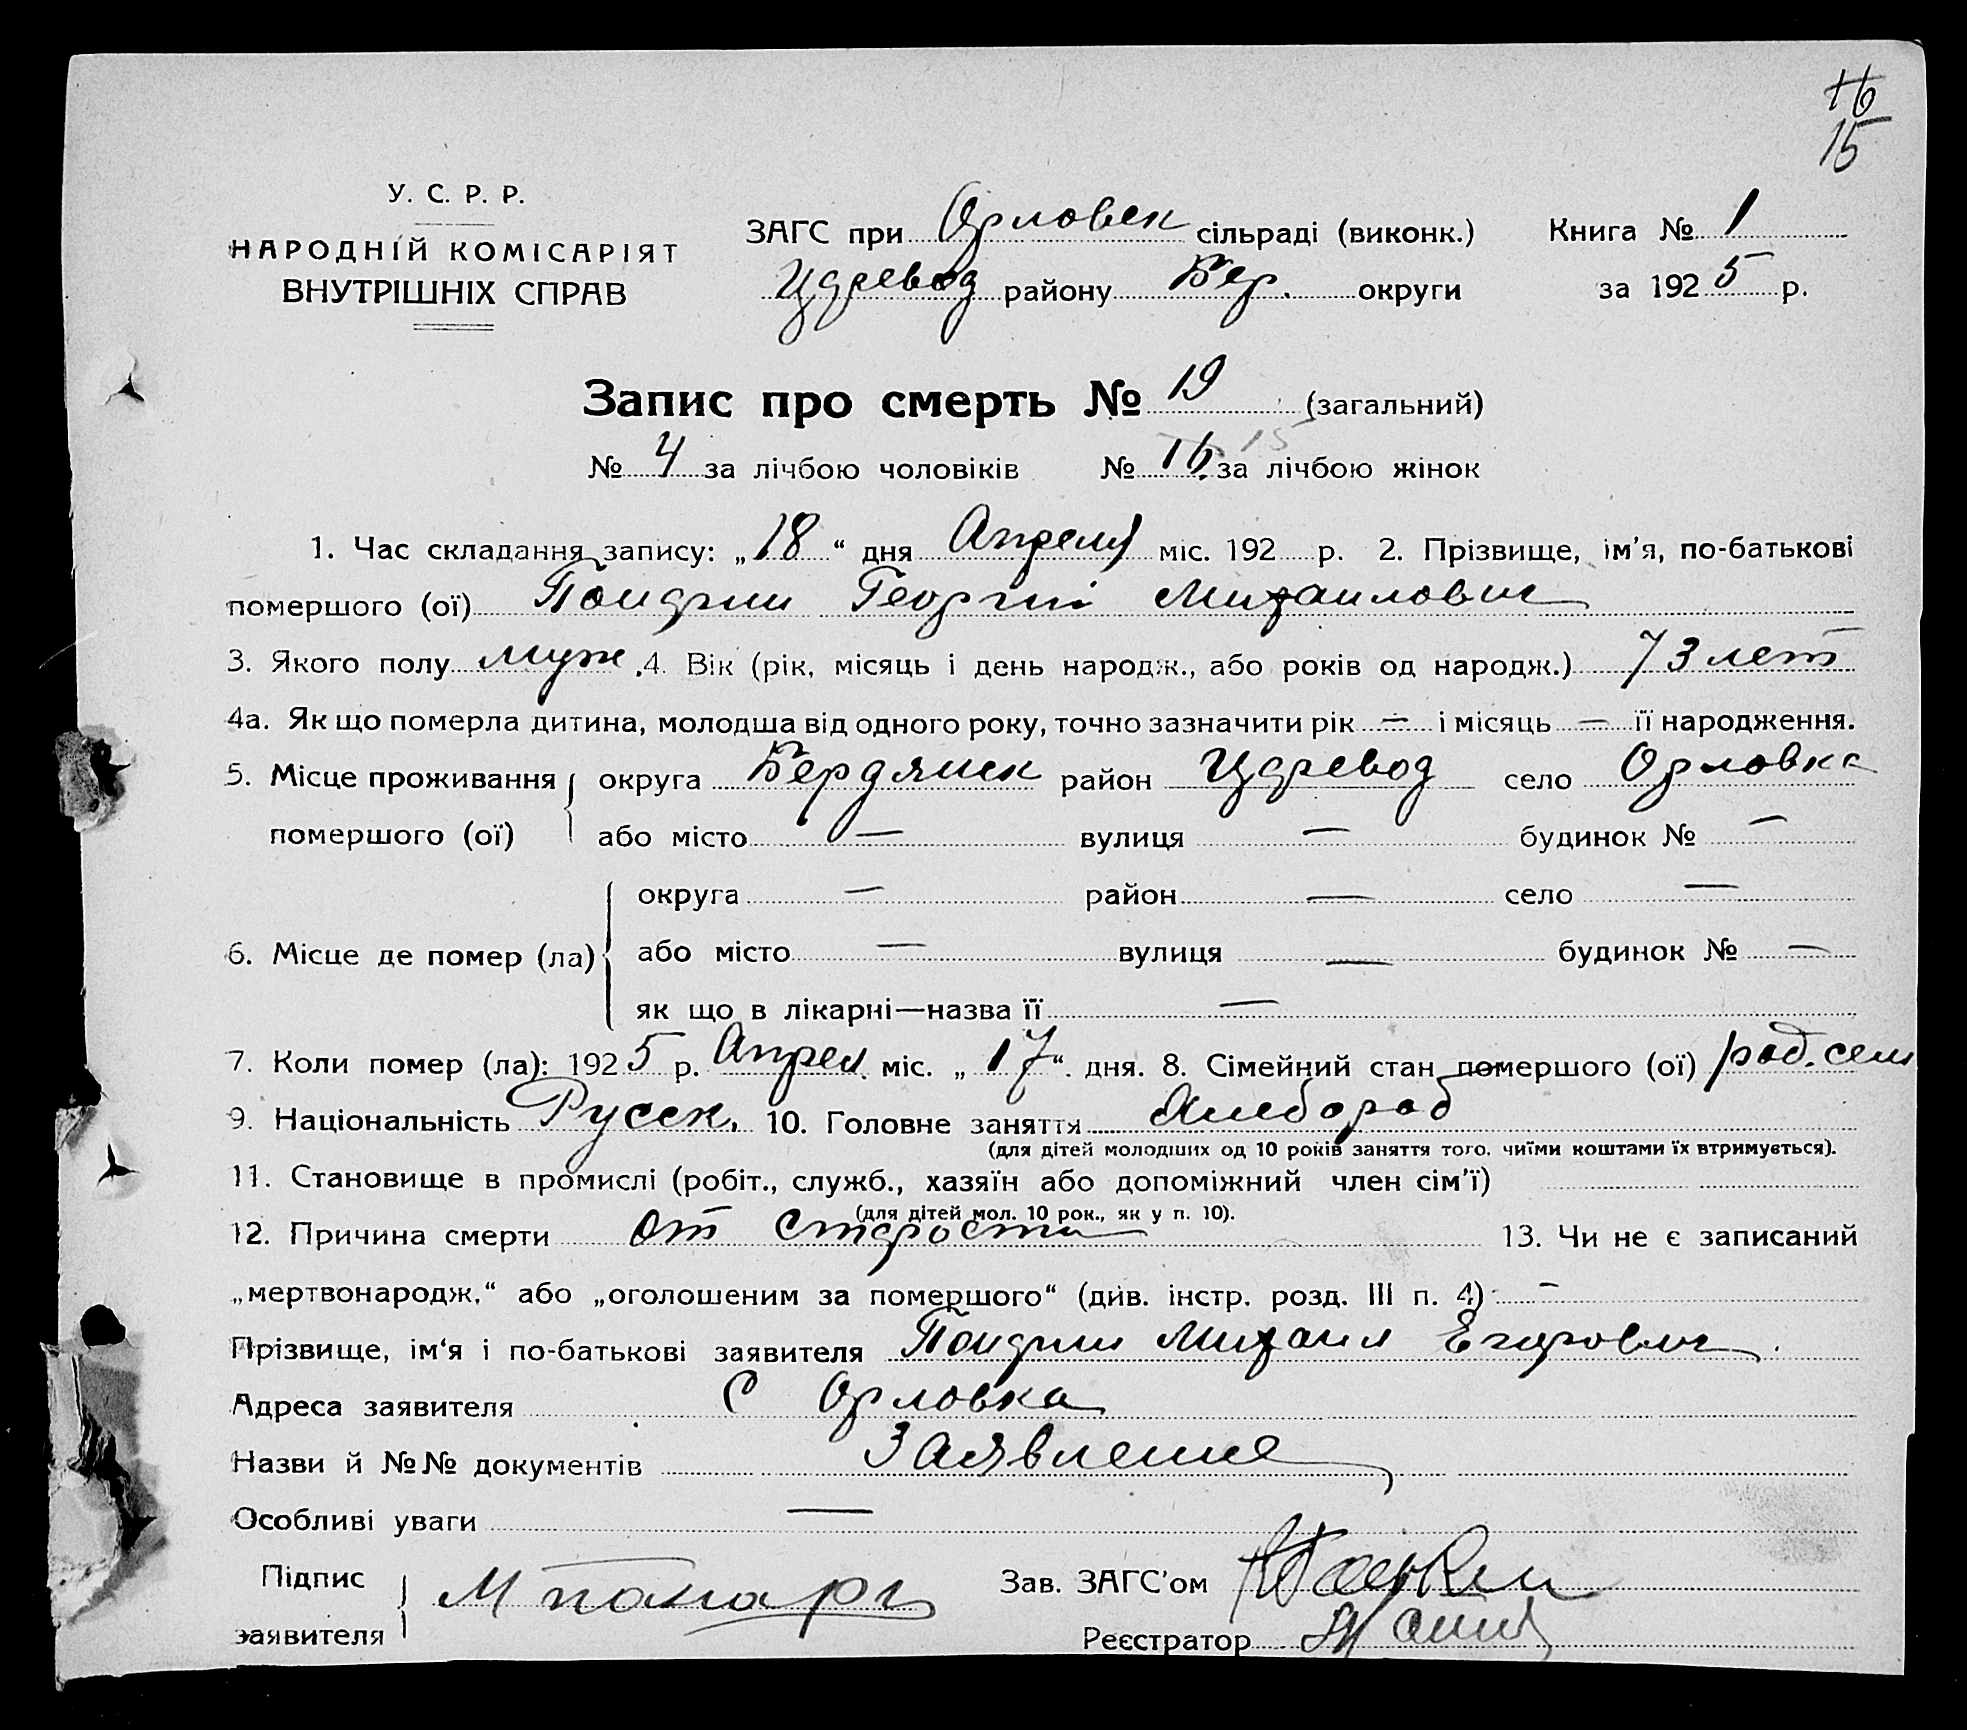 16
15
У. С. Р. Р.
НАРОДНІЙ КОМІСАРІЯТ
ВНУТРІШНІХ СПРАВ
ЗАГС при Орловск сільраді (виконк.) Книга № 1
ЦареВод району Бер. округи за 1925 р.
Запис про смерть № 19 (загальний)
№ 4 за лічбою чоловіків № 16 15 за лічбою жінок
1. Час складання запису: „18“ дня Апреля міс. 192 р. 2. Прізвище, ім’я, по-батькові
помершого (ої) Георгий Михаилович
3. Якого полу муж. 4. Вік (рік, місяць і день народж., або років од народж.) 73 лет
4а. Як що померла дитина, молодша від одного року, точно зазначити рік — і місяць — її народження.
5. Місце проживання округа Бердянск район Царевод село Орловка
помершого (ої) або місто — вулиця — будинок № —
округа — район — село —
6. Місце де помер (ла) або місто — вулиця — будинок № —
як що в лікарні—назва її —
7. Коли помер (ла): 1925 р. Апрел. міс. „17“ дня. 8. Сімейний стан помершого (ої)
9. Національність Русск. 10. Головне заняття Хлебороб
(для дітей молодших од 10 років заняття того, чиїми коштами їх втримується).
11. Становище в промислі (робіт., служб., хазяїн або допоміжний член сім’ї)
(для дітей мол. 10 рок., як у п. 10).
12. Причина смерти от старости 13. Чи не є записаний
„мертвонародж.“ або „оголошеним за помершого“ (див. інстр. розд. III п. 4) —
Прізвище, ім‘я і по-батькові заявителя Михаил Егорович
Адреса заявителя С Орловка
Назви й №№ документів Заявление
Особливі уваги —
Підпис
заявителя
Зав. ЗАГС’ом
Реєстратор